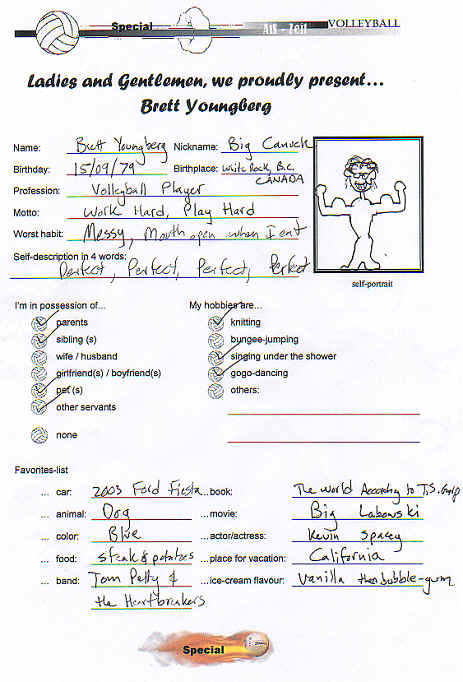 Special All-Zeit VOLLEYBALL
Ladies and Gentlemen, we proudly present...
Brett Youngberg
Name: Brett Youngberg Nickname: Big Canuck
Birthday: 15/09/79 Birthplace: White Rock, B.C.
CANADA
Profession: Volleyball Player
Motto: Work Hard, Play Hard
Worst habit: Messy, Mouth open when I eat
Self-description in 4 words:
Perfect, Perfect, Perfect, Perfect
self-portrait
I'm in possession of... My hobbies are...
parents knitting
sibling (s) bungee-jumping
wife / husband singing under the shower
girlfriend(s) / boyfriend(s) gogo-dancing
pet (s) others:
other servants
none
Favorites-list
... car: 2003 Ford Fiesta ...book: The World According to T.S. Garp
... animal: Dog ...movie: Big Labowski
... color: Blue ...actor/actress: Kevin Spacey
... food: steak & potatoes ...place for vacation: California
... band: Tom Petty & ...ice-cream flavour: Vanilla then bubble-gum
the Heartbreakers
Special